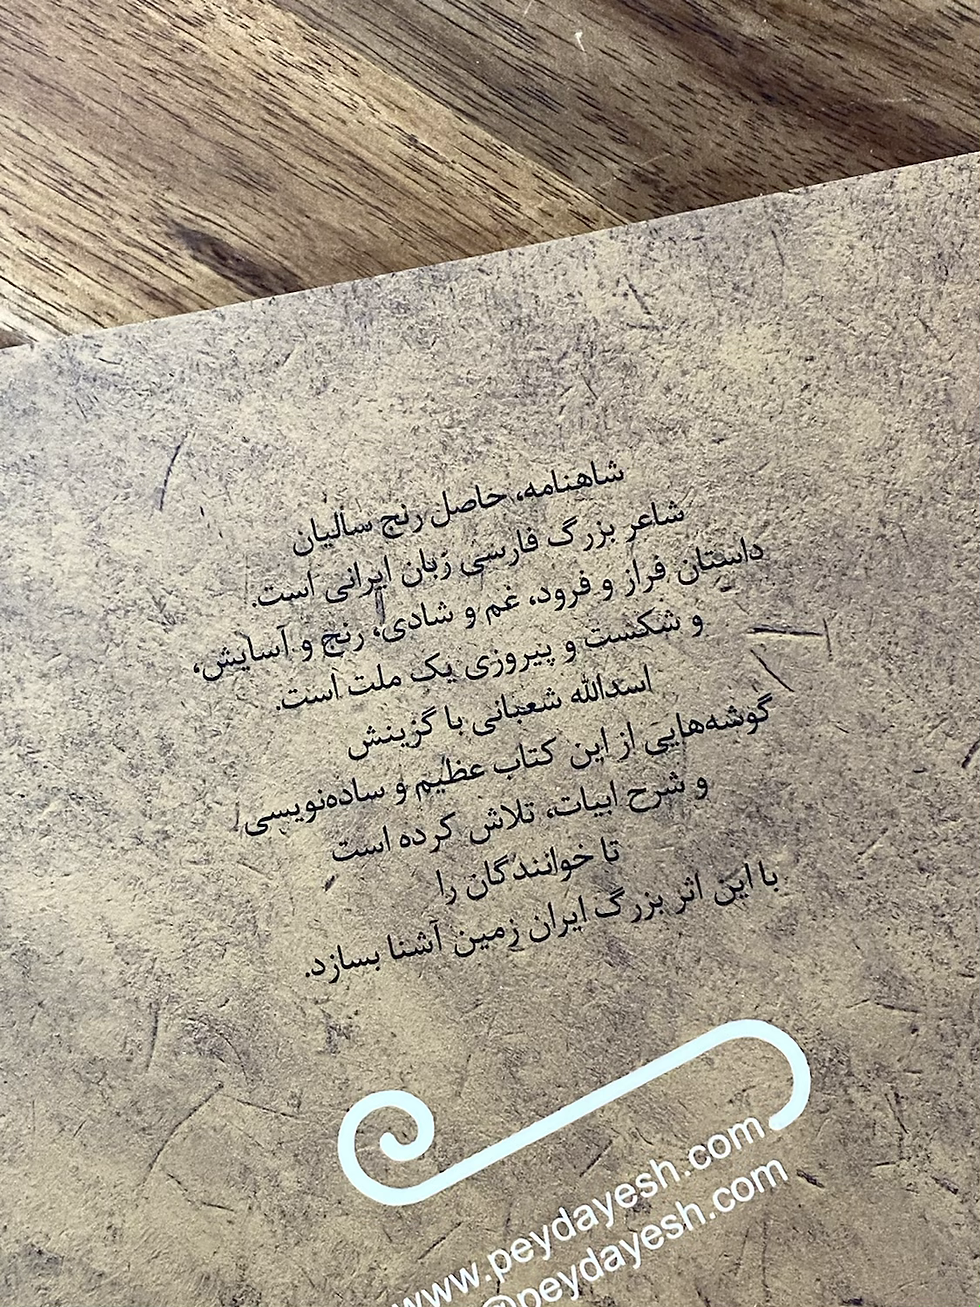 شاهنامه، حاصل رنج سالیان
شاعر بزرگ فارسی زبان ایرانی است.
داستان فراز و فرود، غم و شادی، رنج و آسایش،
و شکست و پیروزی یک ملت است.
اسدالله شعبانی با گزینش
گوشه‌هایی از این کتاب عظیم و ساده‌نویسی
و شرح ابیات، تلاش کرده است
تا خوانندگان را
با این اثر بزرگ ایران زمین آشنا بسازد.
www.peydayesh.com
@peydayesh.com